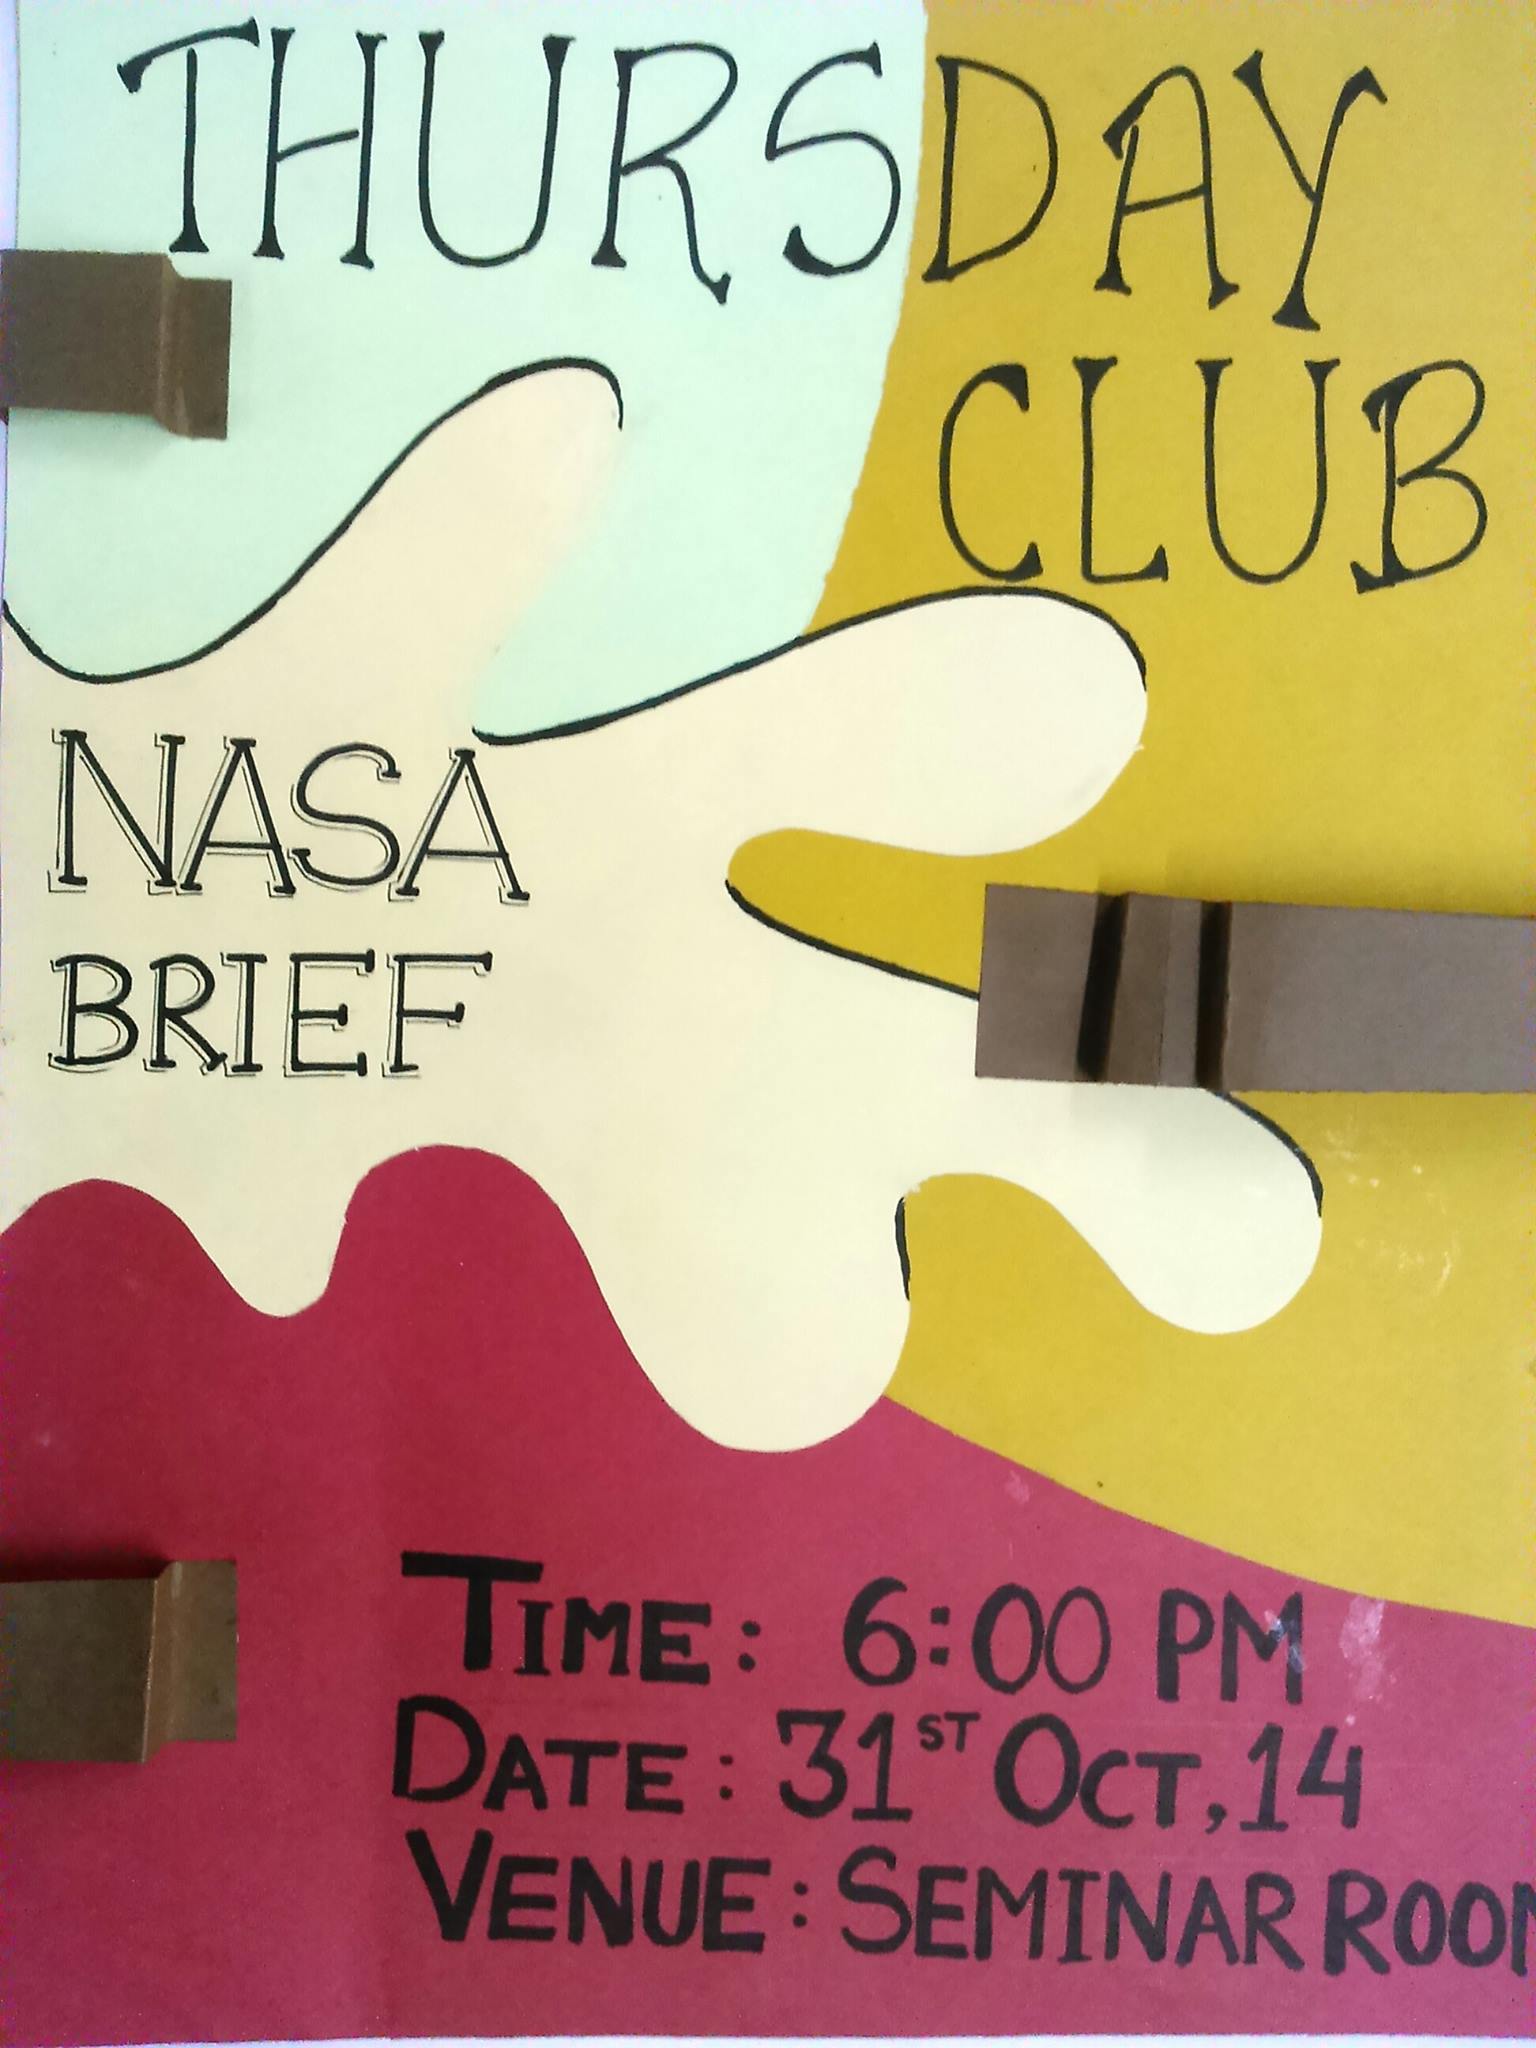 THURSDAY
CLUB
NASA
BRIEF
TIME: 6:00 PM
DATE: 31ST OCT, 14
VENUE: SEMINAR ROOM